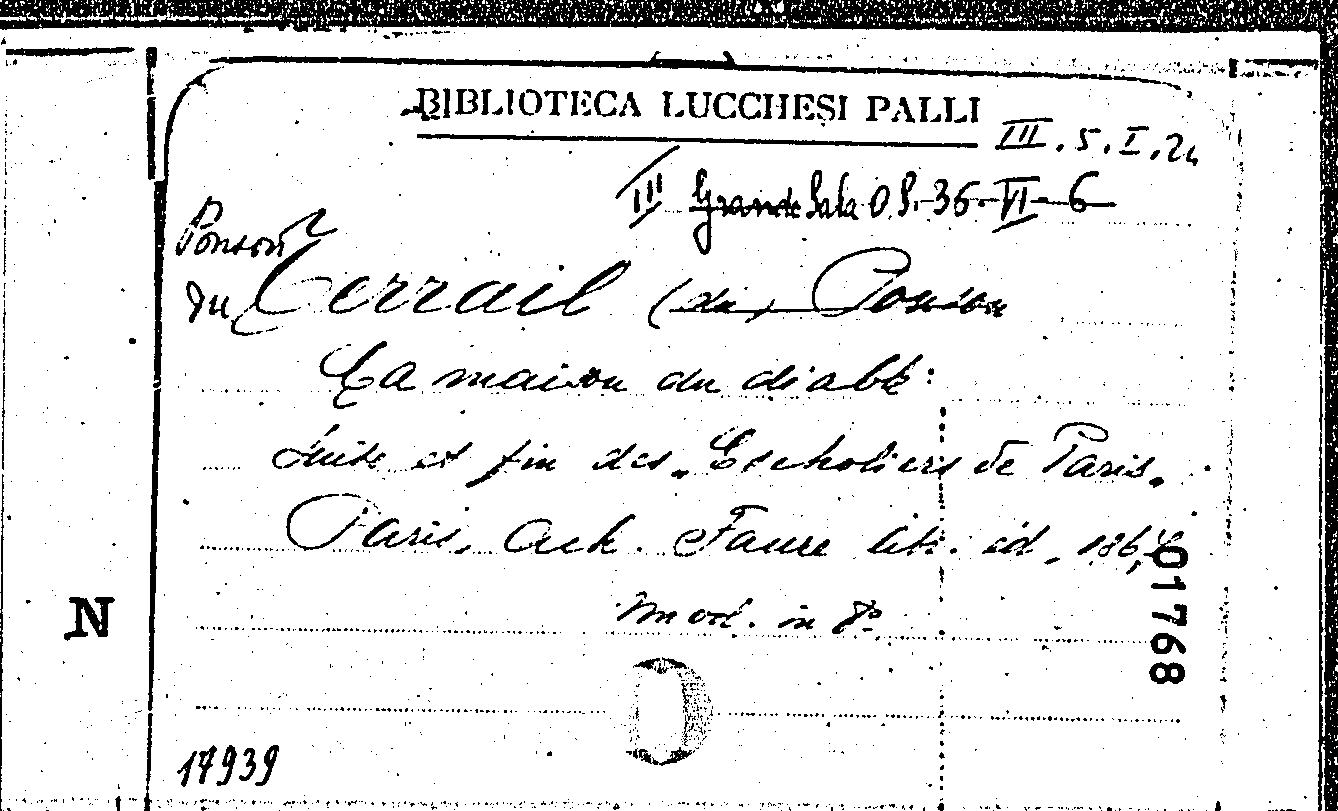 BIBLIOTECA LUCCHESI PALLI
III. 5. I. 24
III Grande Sala O S. 36-VI-6
Ponson
du Terrail (du) Ponson
La maison du diable:
Suite et fin des „Escholiers de Paris.
Paris, Ach. Faure lib. éd, 186
mod. in 8º
N
01768
17939